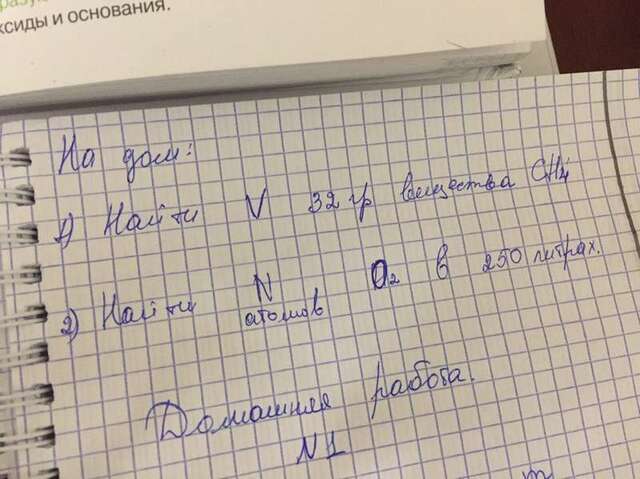 ксиды и основания.
На дом:
1) Найти V 32 гр вещества CH4
2) Найти N атомов O2 в 250 литрах.
Домашняя работа.
N1